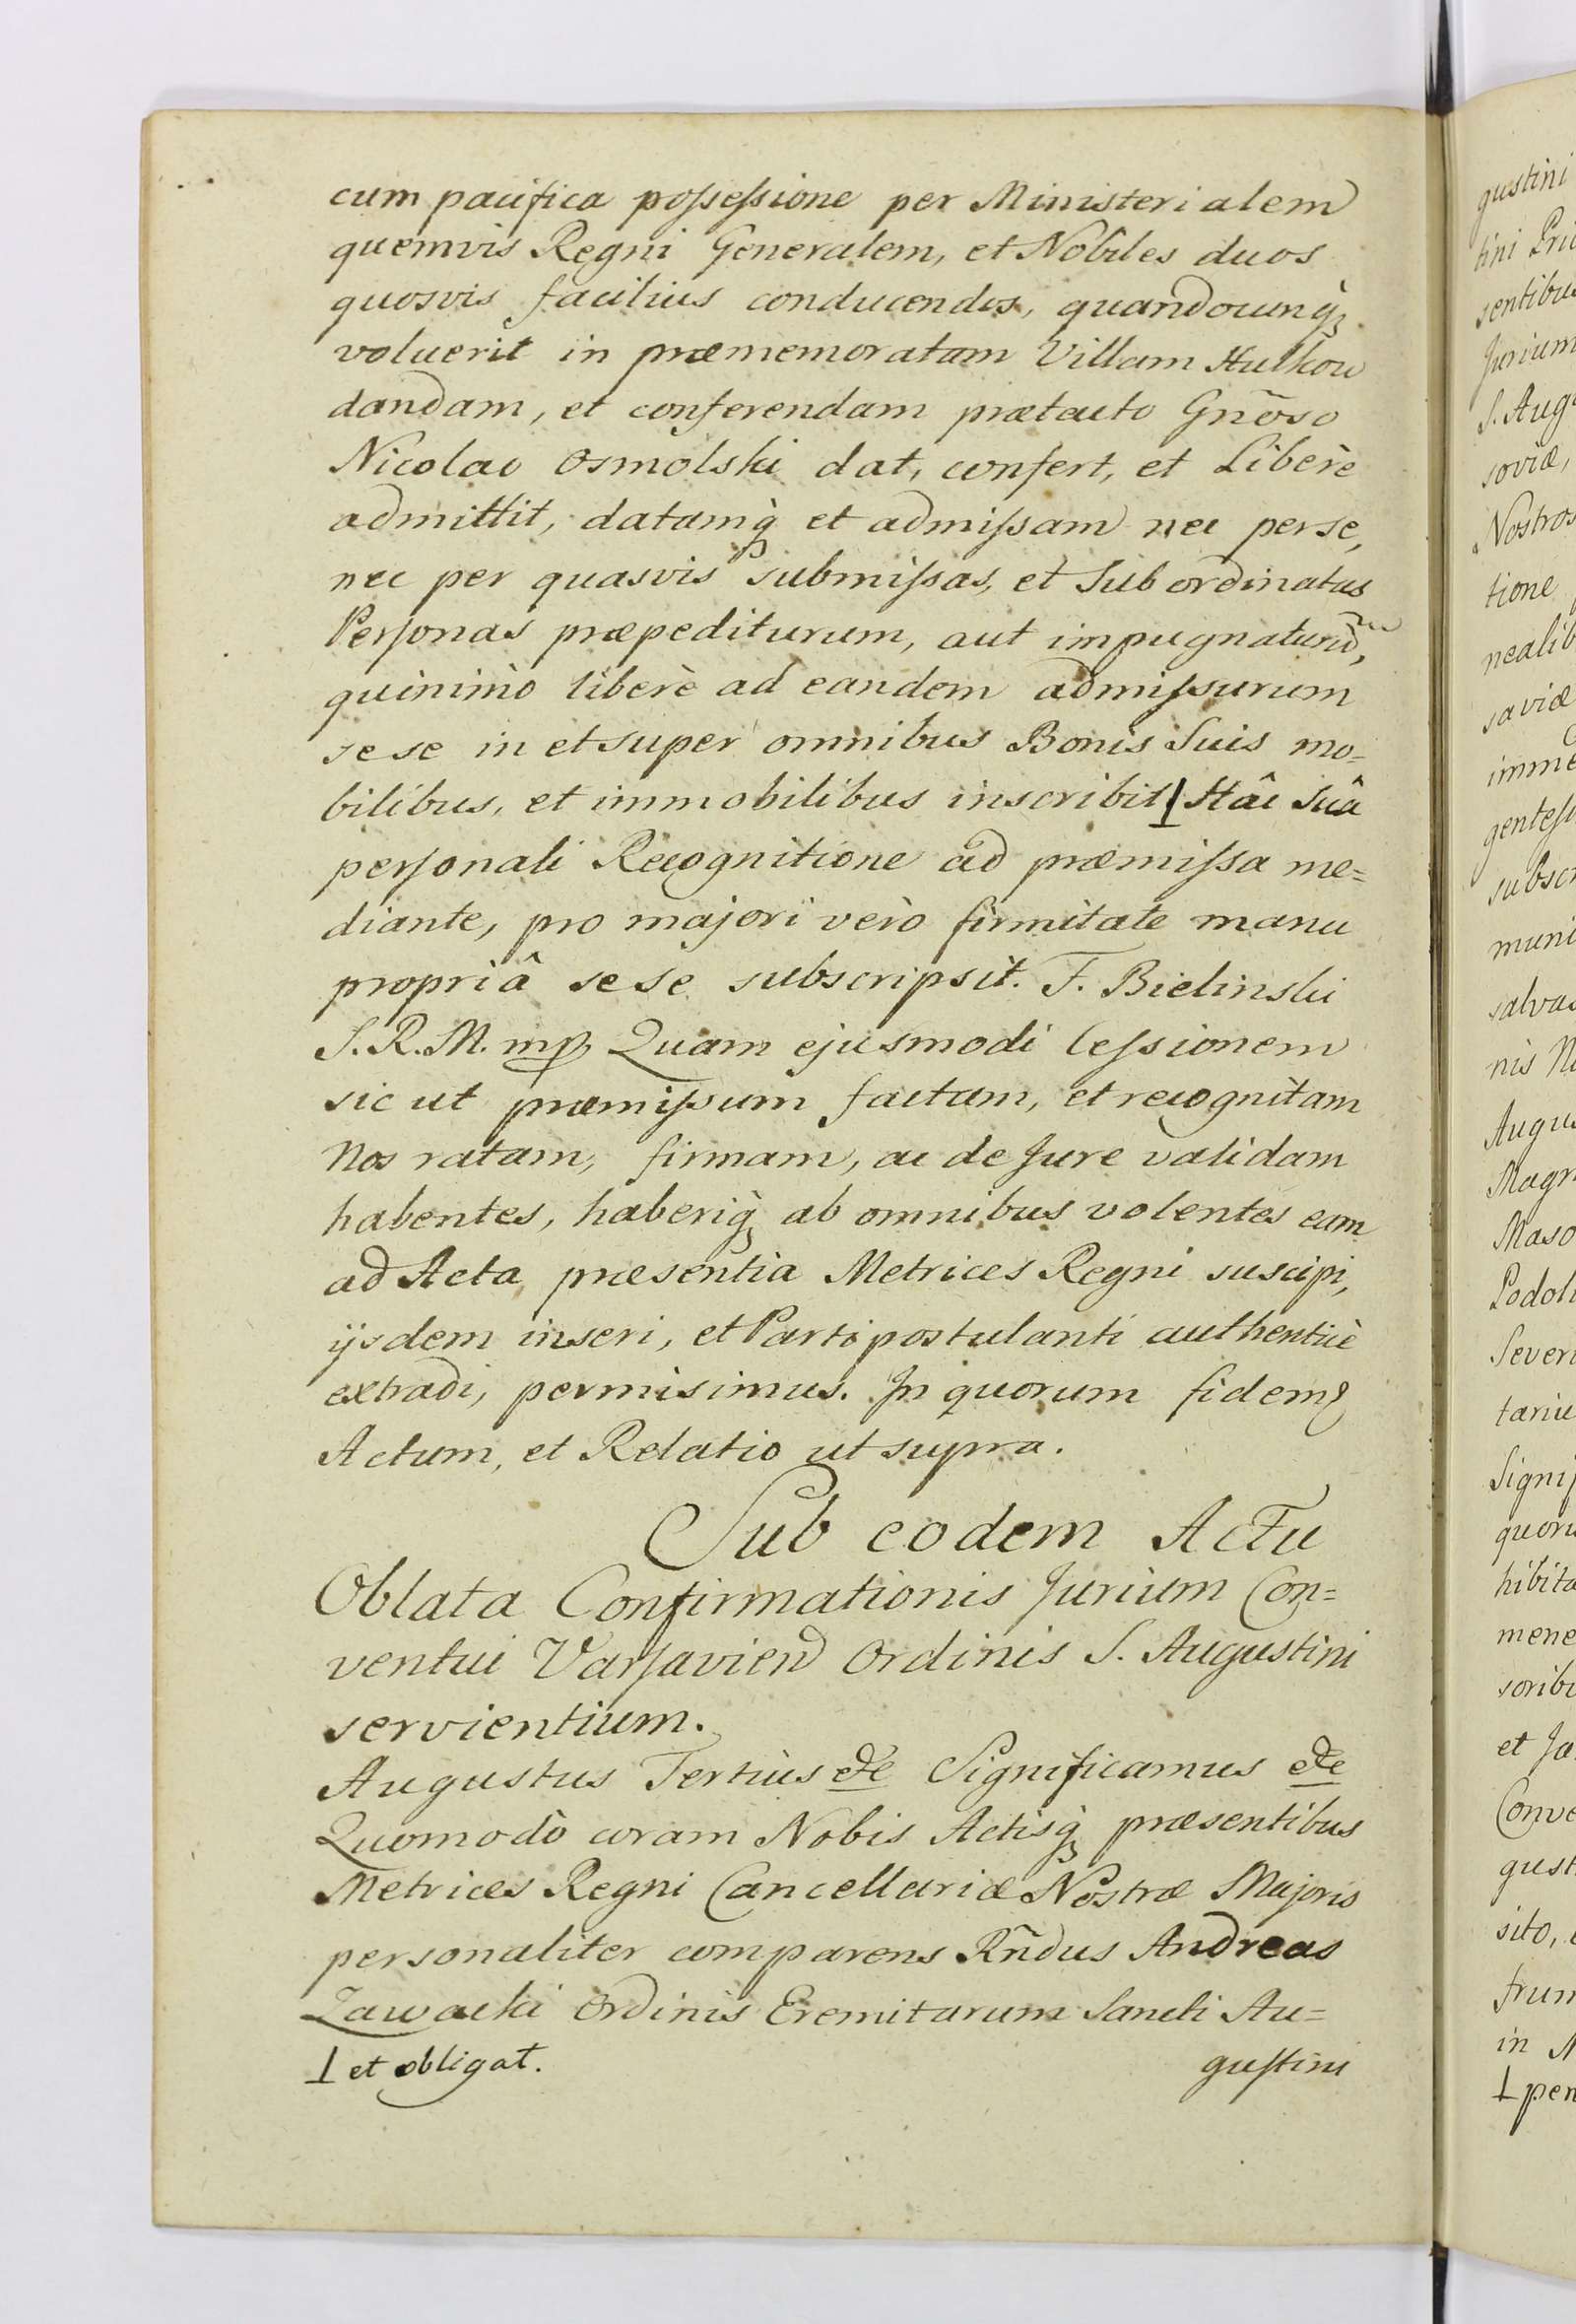 cum pacifica poſseſsione per Ministerialem
quemvis Regni Generalem, et Nobiles duos
quosvis facilius conducendos, quandocunq̀ꝫ
voluerit in præmemoratam Villam Hulkow
dandam, et conferendam prætacto Gnõso
Nicolao Osmolski dat, confert, et Liberè
admittit, datamq̀ꝫ et admiſsam nec per se,
nec per quasvis submiſsas, et Subordinatas
Perſonas præpediturum, aut impugnaturũ,
quinimò liberè ad eandem admiſsurum
sese in et super omnibus Bonis Suis mo=
bilibus, et immobilibus inscribit ⊥ Hâc Suâ
perſonali Recognitione ad præmiſsa me=
diante, pro majori verò firmitate manu
propriâ sese subscripsit. F. Bielinski
S. R. M. mp Quam ejusmodi Ceſsionem
sic ut præmiſsum factam, et recognitam
Nos ratam, firmam, ac de Jure validam
habentes, haberiq̀ꝫ ab omnibus volentes eam
ad Acta præsentia Metrices Regni suscipi,
ijsdem inseri, et Parti postulanti authenticè
extradi, permisimus. In quorum fidem
Actum, et Relatio ut supra.
Sub eodem Actu
Oblata Confirmationis Jurium Con=
ventui Varſavien Ordinis S. Augustini
servientium.
Augustus Tertius etc Significamus etc
Quomodò coram Nobis Actisq̀ꝫ præsentibus
Metrices Regni Cancellariæ Nostræ Majoris
personaliter comparens Rñdus Andreas
Zawacki Ordinis Eremitarum Sancti Au=
⊥ et obligat.
guſtini
gustini
sentibus
Jurium
S. Aug
soviæ,
Nostros
tione
nealib
saviæ
imme
genteſi
subscr
muni
salvas
nis N
Augus
Magn
Maso
Podol
Sever
tariu
Signif
quoru
hibita
mene
soribu
et Ja
Conve
gust
sito,
frum
in N
⊥ pen